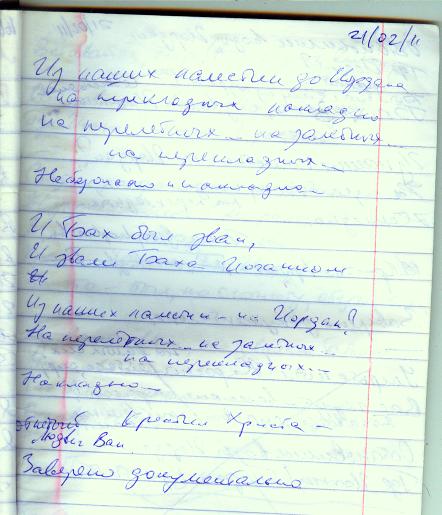 21/02/11
Из наших палестин до Иордана
на перекладных накладно
на перелётных... на залётных...
на перекладных...
Небезопасно и накладно...
И Бах был зван,
И звали Баха Иоганном
И
Из наших палестин – на Иордан?
На перелётных... на залётных...
на перекладных...
Накладно...
крестил Христа –
Людвиг Ван
Заверено документально